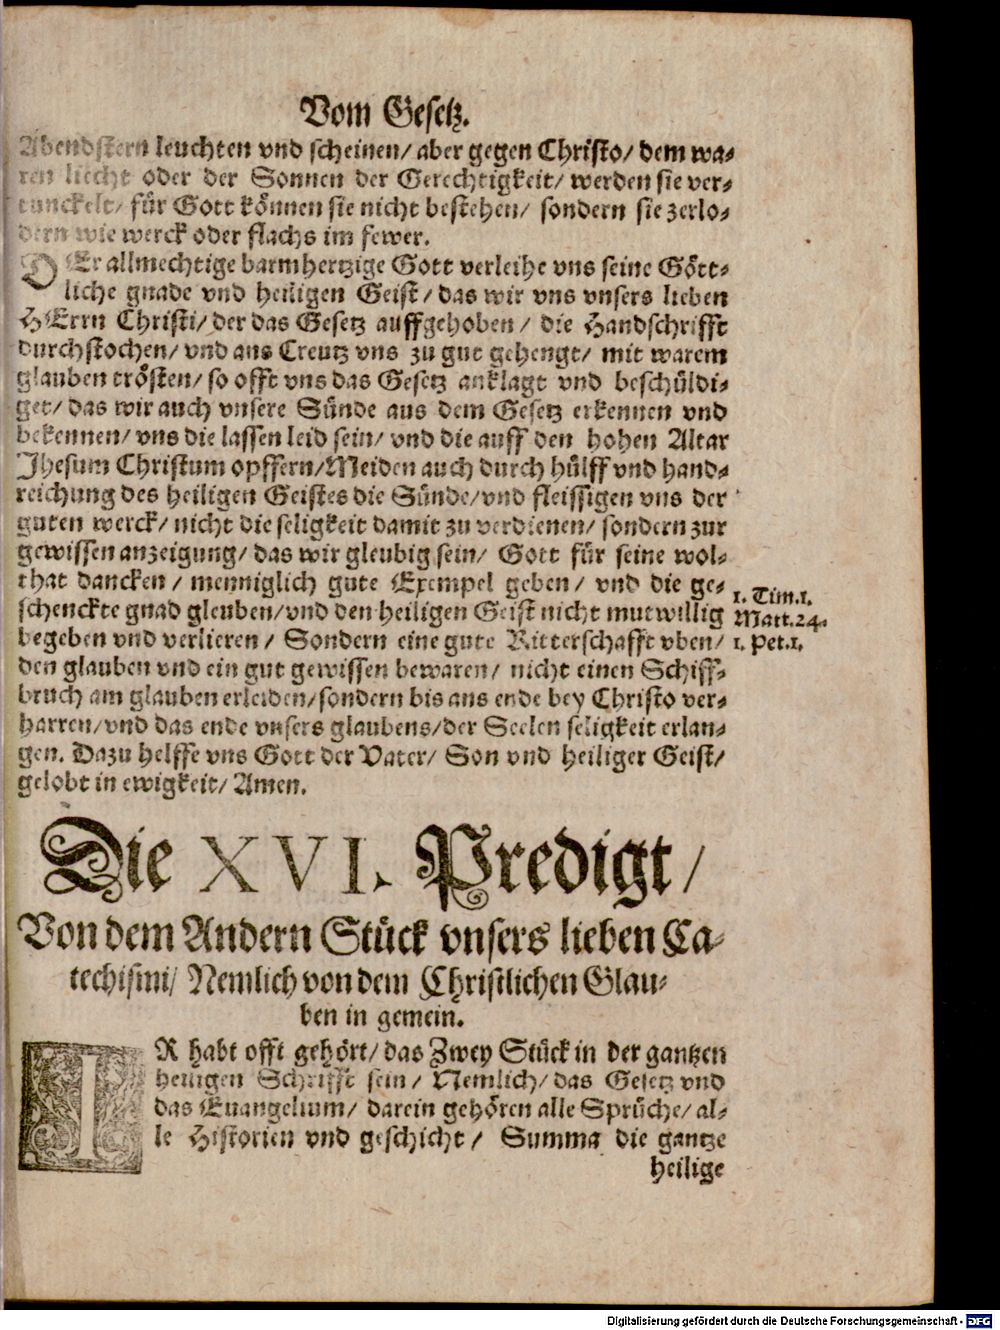 Vom Gesetz.
Abendstern leuchten vnd scheinen/ aber gegen Christo/ dem wa-
ren liecht oder der Sonnen der Gerechtigkeit/ werden sie ver-
tunckelt/ für Gott können sie nicht bestehen/ sondern sie zerlo-
dern wie werck oder flachs im fewer.
DEr allmechtige barmhertzige Gott verleihe vns seine Gött-
liche gnade vnd heiligen Geist/ das wir vns vnsers lieben
HErrn Christi/ der das Gesetz auffgehoben/ die Handschrifft
durchstochen/ vnd ans Creutz vns zu gut gehengt/ mit warem
glauben trösten/ so offt vns das Gesetz anklagt vnd beschüldi-
get/ das wir auch vnsere Sünde aus dem Gesetz erkennen vnd
bekennen/ vns die lassen leid sein/ vnd die auff den hohen Altar
Jhesum Christum opffern/ Meiden auch durch hülff vnd hand-
reichung des heiligen Geistes die Sünde/ vnd fleissigen vns der
guten werck/ nicht die seligkeit damit zu verdienen/ sondern zur
gewissen anzeigung/ das wir gleubig sein/ Gott für seine wol-
that dancken/ menniglich gute Exempel geben/ vnd die ge-
schenckte gnad gleuben/ vnd den heiligen Geist nicht mutwillig
begeben vnd verlieren/ Sondern eine gute Ritterschafft vben/
den glauben vnd ein gut gewissen bewaren/ nicht einen Schiff-
bruch am glauben erleiden/ sondern bis ans ende bey Christo ver-
harren/ vnd das ende vnsers glaubens/ der Seelen seligkeit erlan-
gen. Dazu helffe vns Gott der Vater/ Son vnd heiliger Geist/
gelobt in ewigkeit/ Amen.
1. Tim.1.
Matt.24.
1. Pet.1.
Die XVI. Predigt/
Von dem Andern Stück vnsers lieben Ca-
techismi/ Nemlich von dem Christlichen Glau-
ben in gemein.
IR habt offt gehört/ das Zwey Stück in der gantzen
heiligen Schrifft sein/ Nemlich/ das Gesetz vnd
das Euangelium/ darein gehören alle Sprüche/ al-
le Historien vnd geschicht/ Summa die gantze
heilige
Digitalisierung gefördert durch die Deutsche Forschungsgemeinschaft - DFG